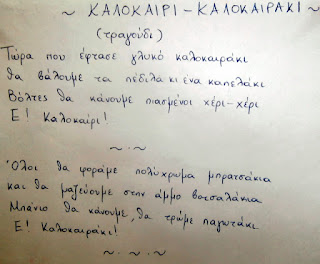 ~ ΚΑΛΟΚΑΙΡΙ - ΚΑΛΟΚΑΙΡΑΚΙ ~
(τραγούδι)
Τώρα που έφτασε γλυκό καλοκαιράκι
θα βάλουμε τα πέδιλα κι ένα καπελάκι
Βόλτες θα κάνουμε πιασμένοι χέρι-χέρι
Ε! Καλοκαίρι!
~ . ~
Όλοι θα φοράμε πολύχρωμα μπρατσάκια
και θα μαζεύουμε στην άμμο βοτσαλάκια
Μπάνιο θα κάνουμε, θα τρώμε παγωτάκι
Ε! Καλοκαιράκι!
~ . ~ . ~